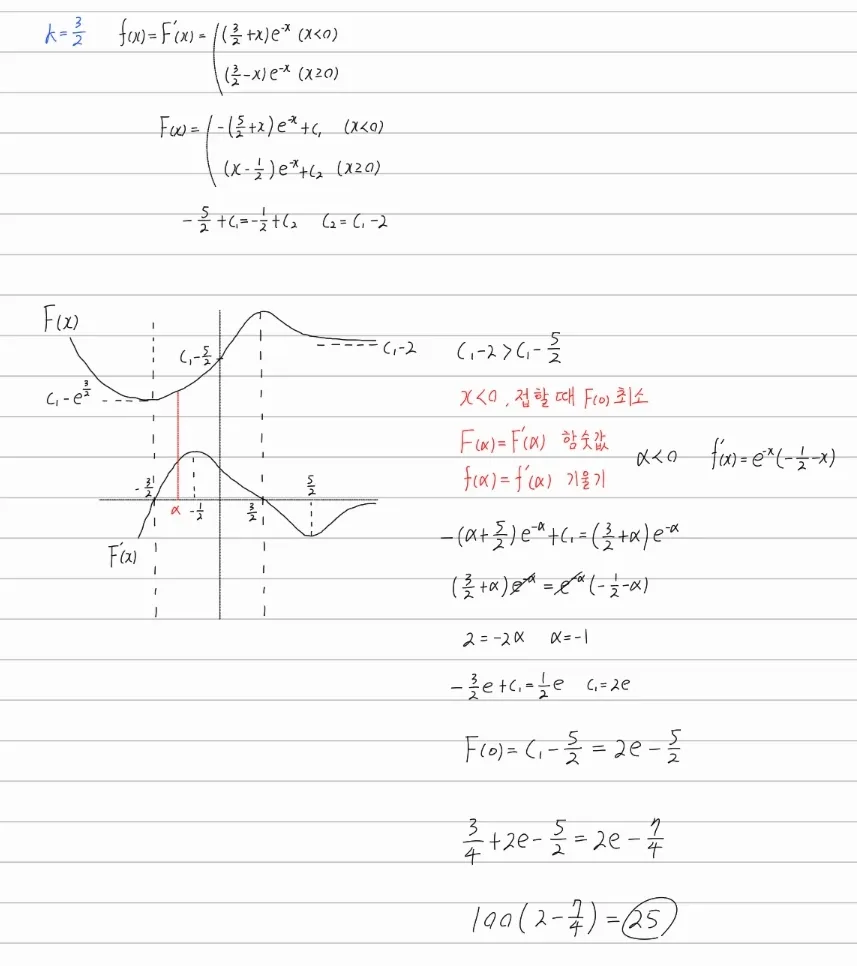 k=3/2 f(x)=F'(x)= (3/2+x)e^-x (x<0)
(3/2-x)e^-x (x≥0)
F(x)= -(5/2+x)e^-x+C₁ (x<0)
(x-1/2)e^-x+C₂ (x≥0)
-5/2+C₁=-1/2+C₂ C₂=C₁-2
F(x)
C₁-5/2
C₁-2
C₁-e^3/2
-3/2
α
-1/2
3/2
5/2
F'(x)
C₁-2>C₁-5/2
x<0, 접할 때 F(0) 최소
F(α)=F'(α) 함숫값
f(α)=f'(α) 기울기
α<0 f'(x)=e^-x(-1/2-x)
-(α+5/2)e^-α+C₁=(3/2+α)e^-α
(3/2+α)e^-α=e^-α(-1/2-α)
2=-2α α=-1
-3/2e+C₁=1/2e C₁=2e
F(0)=C₁-5/2=2e-5/2
3/4+2e-5/2=2e-7/4
100(2-7/4)=25